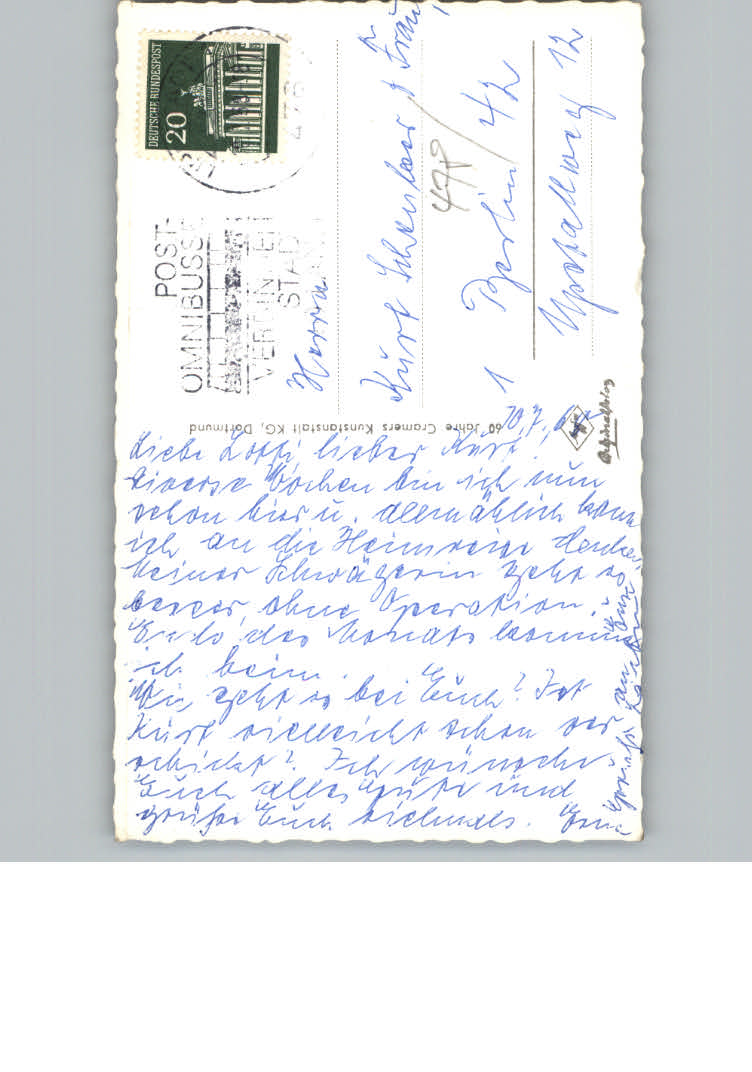 DEUTSCHE BUNDESPOST
20
POST-
OMNIBUSSE
STADT
Herrn
Kurt & Frau
478
1 Berlin 42
12
60 Jahre Cramers Kunstanstalt KG, Dortmund
10.7.
Liebe Lotti, lieber Kurt!
Diverse Wochen bin ich nun
schon hier u. allmählich kann
ich an die Heimreise denken.
Meiner Schwägerin geht es
besser, ohne Operation.
Ende des Monats komme
ich heim.
Wie geht es bei Euch? Ist
Kurt vielleicht schon ver
schickt? Ich wünsche
Euch alles Gute und
grüße Euch vielmals.